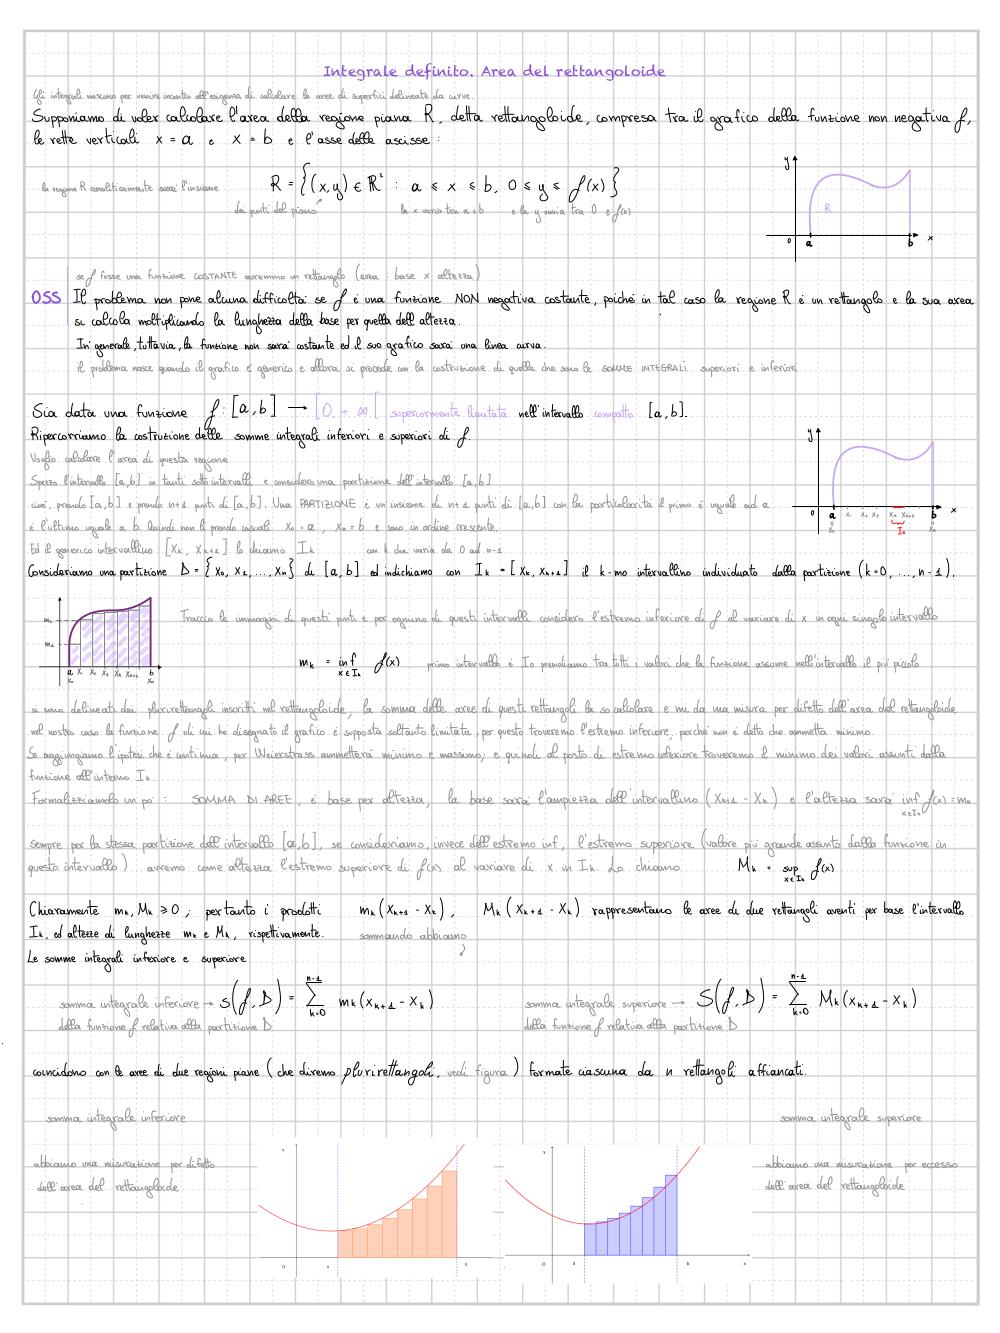 Integrale definito. Area del rettangoloide
Gli integrali nascono per venire incontro all'esigenza di calcolare le aree di superfici delineate da curve.
Supponiamo di voler calcolare l'area della regione piana R, detta rettangoloide, compresa tra il grafico della funzione non negativa f,
le rette verticali x = a e x = b e l'asse delle ascisse :
la regione R analiticamente sarà l'insieme R = {(x,y) ∈ ℝ² : a ≤ x ≤ b, 0 ≤ y ≤ f(x)}
dei punti del piano la x varia tra a e b e la y varia tra 0 e f(x)
y
R
0 a b x
se f fosse una funzione COSTANTE avremmo un rettangolo (area : base x altezza)
OSS Il problema non pone alcuna difficoltà se f è una funzione NON negativa costante, poiché in tal caso la regione R è un rettangolo e la sua area
si calcola moltiplicando la lunghezza della base per quella dell'altezza.
In generale, tuttavia, la funzione non sarà costante ed il suo grafico sarà una linea curva.
il problema nasce quando il grafico è generico e allora si procede con la costruzione di quelle che sono le SOMME INTEGRALI superiori e inferiori
Sia data una funzione f : [a,b] → [0, + ∞[ superiormente limitata nell'intervallo compatto [a,b].
Ripercorriamo la costruzione delle somme integrali inferiori e superiori di f.
Voglio calcolare l'area di questa regione
Spezzo l'intervallo [a,b] in tanti sotto intervalli e considero una partizione dell'intervallo [a,b]
cioè, prendo [a,b] e prendo n+1 punti di [a,b]. Una PARTIZIONE è un insieme di n+1 punti di [a,b] con la particolarità il primo è uguale ad a
e l'ultimo uguale a b. Quindi non li prendo casuali x₀ = a , xₙ = b e sono in ordine crescente.
Ed il generico intervallino [xₖ, xₖ₊₁] lo chiamo Iₖ con k che varia da 0 ad n-1
y
0 a x₁ x₂ x₃ xₖ xₖ₊₁ b x
x₀ Iₖ xₙ
Consideriamo una partizione D = {x₀, x₁, ..., xₙ} di [a,b] ed indichiamo con Iₖ = [xₖ, xₖ₊₁] il k-mo intervallino individuato dalla partizione (k=0, ..., n-1).
Traccio le immagini di questi punti e per ognuno di questi intervalli considero l'estremo inferiore di f al variare di x in ogni singolo intervallo
mₖ = inf f(x) primo intervallo è I₀ prendiamo tra tutti i valori che la funzione assume nell'intervallo il più piccolo
x∈Iₖ
mₖ
m₁
a x₁ x₂ x₃ xₖ xₖ₊₁ b
x₀ xₙ
si sono delineati dei plurirettangoli inscritti nel rettangoloide, la somma delle aree di questi rettangoli la so calcolare e mi da una misura per difetto dell'area del rettangoloide
nel nostro caso la funzione f di cui ho disegnato il grafico è supposta soltanto limitata, per questo troveremo l'estremo inferiore, perché non è detto che ammetta minimo.
Se aggiungiamo l'ipotesi che è continua, per Weierstrass ammetterà minimo e massimo; e quindi al posto di estremo inferiore troveremo il minimo dei valori assunti dalla
funzione all'interno Iₖ.
Formalizziamolo un po' : SOMMA DI AREE, è base per altezza, la base sarà l'ampiezza dell'intervallino (xₖ₊₁ - xₖ) e l'altezza sarà inf f(x) = mₖ
x∈Iₖ
sempre per la stessa partizione dell'intervallo [a,b], se consideriamo, invece dell'estremo inf, l'estremo superiore (valore più grande assunto dalla funzione in
questo intervallo) avremo come altezza l'estremo superiore di f(x) al variare di x in Iₖ. Lo chiamo Mₖ = sup f(x)
x∈Iₖ
Chiaramente mₖ, Mₖ ≥ 0 ; pertanto i prodotti mₖ(xₖ₊₁ - xₖ) , Mₖ(xₖ₊₁ - xₖ) rappresentano le aree di due rettangoli aventi per base l'intervallo
Iₖ, ed altezze di lunghezze mₖ e Mₖ, rispettivamente. sommando abbiamo
Le somme integrali inferiore e superiore
somma integrale inferiore → s(f,D) = n-1 ∑ k=0 mₖ(xₖ₊₁ - xₖ) somma integrale superiore → S(f,D) = n-1 ∑ k=0 Mₖ(xₖ₊₁ - xₖ)
della funzione f relativa alla partizione D della funzione f relativa alla partizione D
coincidono con le aree di due regioni piane (che diremo plurirettangoli, vedi figura) formate ciascuna da n rettangoli affiancati.
somma integrale inferiore somma integrale superiore
abbiamo una misurazione per difetto abbiamo una misurazione per eccesso
dell'area del rettangoloide dell'area del rettangoloide
y y
O a b x O a b x